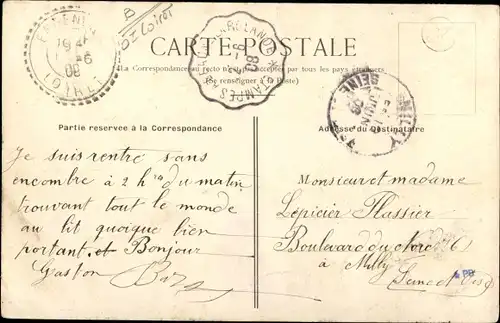 B
Loiret
CARTE POSTALE
La Correspondance au recto n'est pas acceptée par tous les pays étrangers.
(Se renseigner à la Poste)
LOIRET
MILLY
SEINE
Partie reservée à la Correspondance
Adresse du Destinataire
Je suis rentré sans
encombre à 2 hres du matin
trouvant tout le monde
au lit quoique bien
portant et Bonjour
Gaston
Monsieur et madame
Lepicier Flassier
Boulevard du
à Milly
Seine et Oise